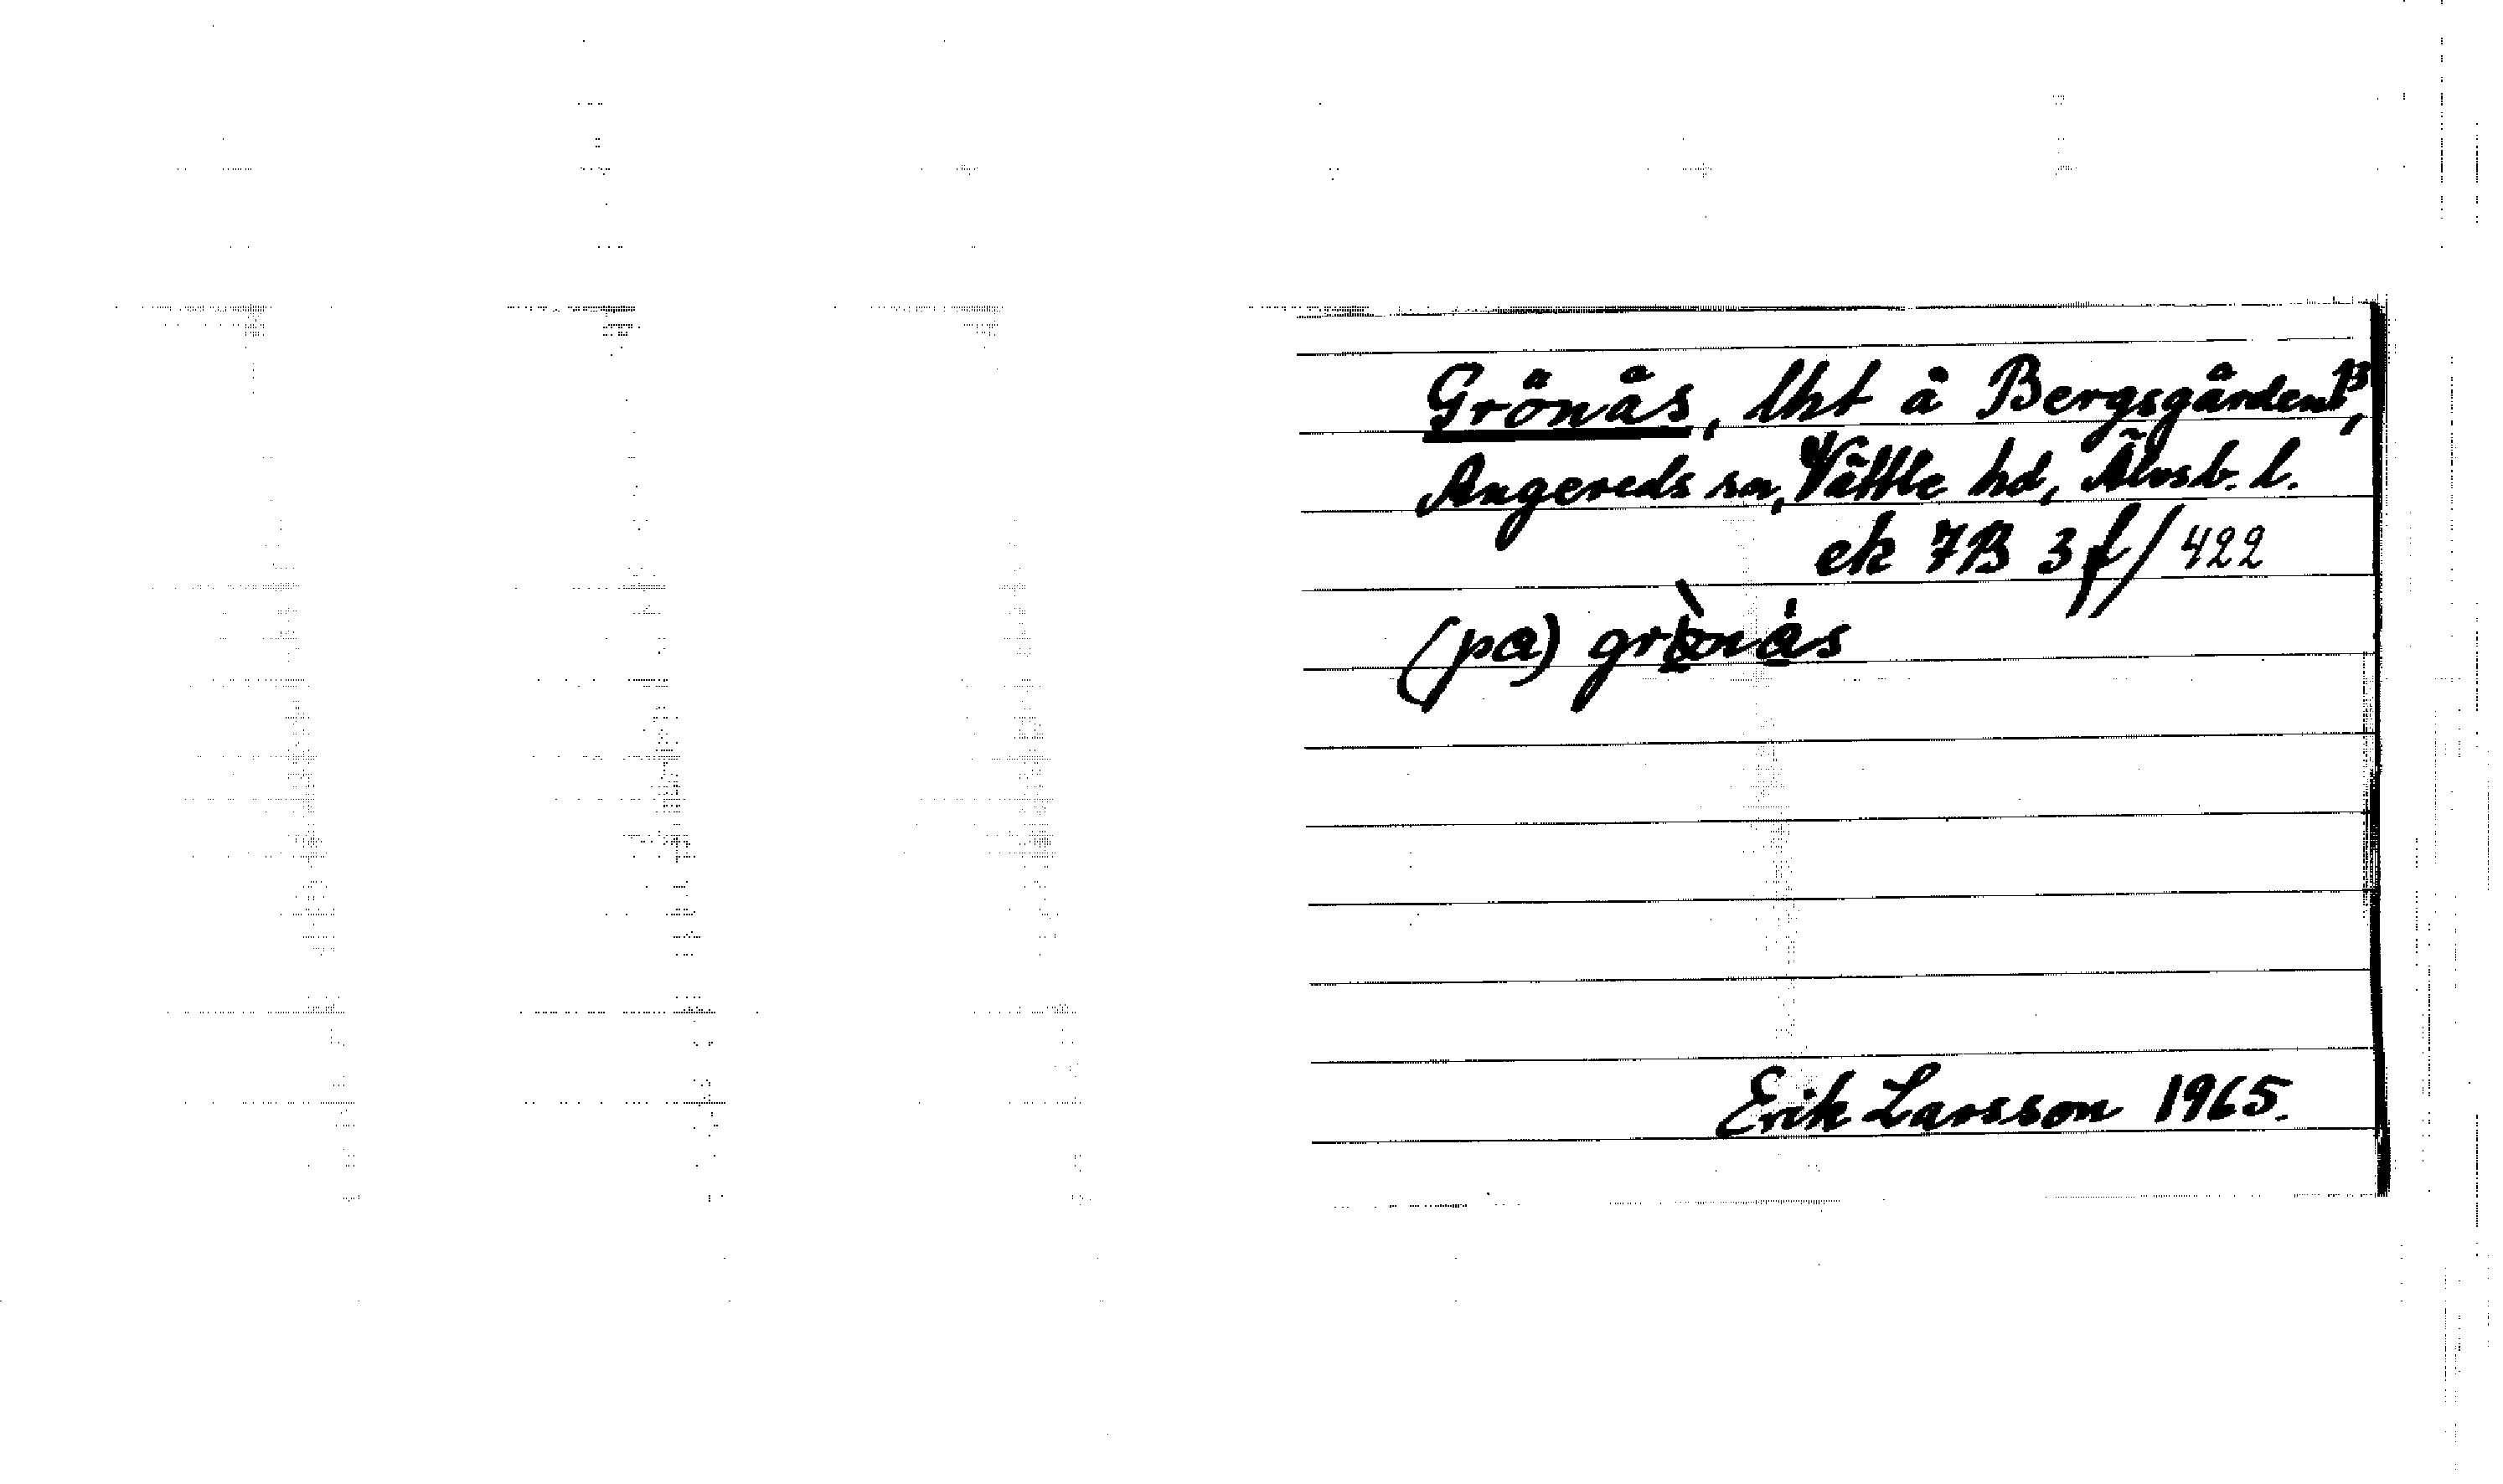 Grönås, lht å Bergsgården B,
Angereds sn, Vättle hd, Älvsb. l.
ek 7B 3f/422
(pa) grònås
Erik Larsson 1965.